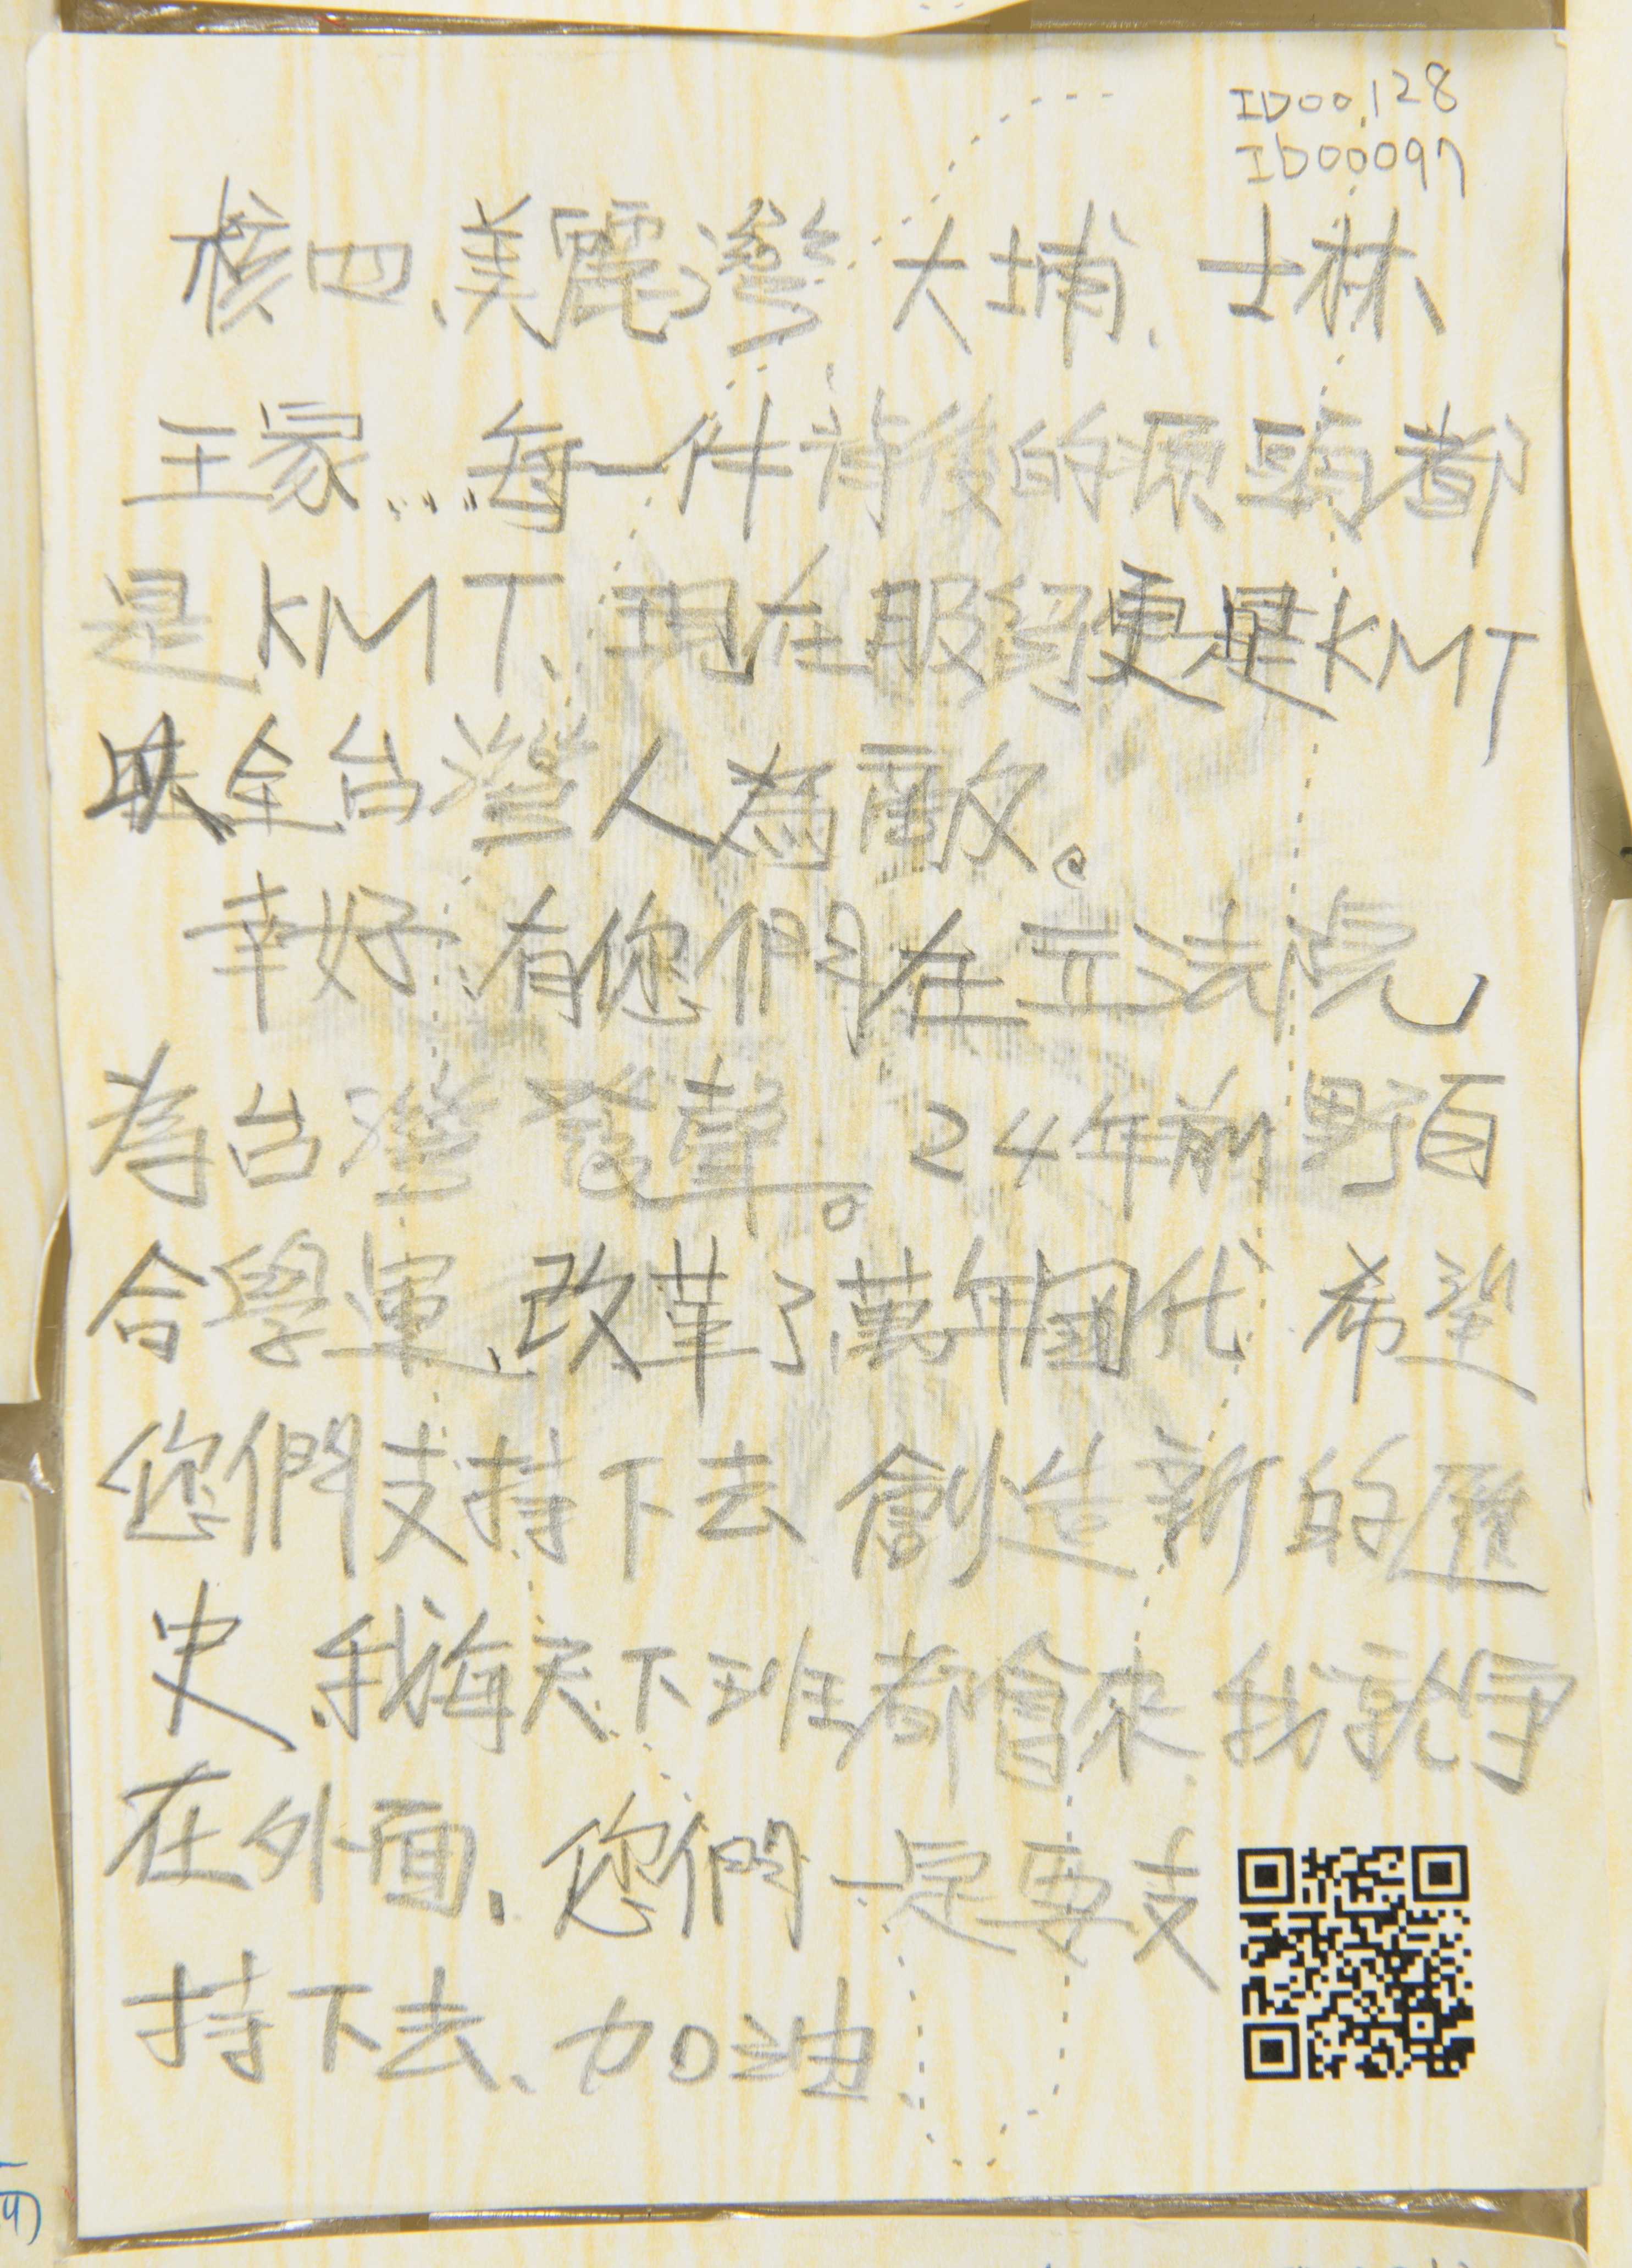 ID00128
ID00097
核四、美麗灣、大埔、士林、
王家……每一件背後的源頭都
是KMT、現在服貿更是KMT
與全台灣人為敵。
幸好、有您們在立法院
為台灣發聲。24年前野百
合學運、改革了萬年國代 希望
您們支持下去 創造新的歷
史、我每天下班都會來、我就守
在外面、您們一定要支
持下去、加油